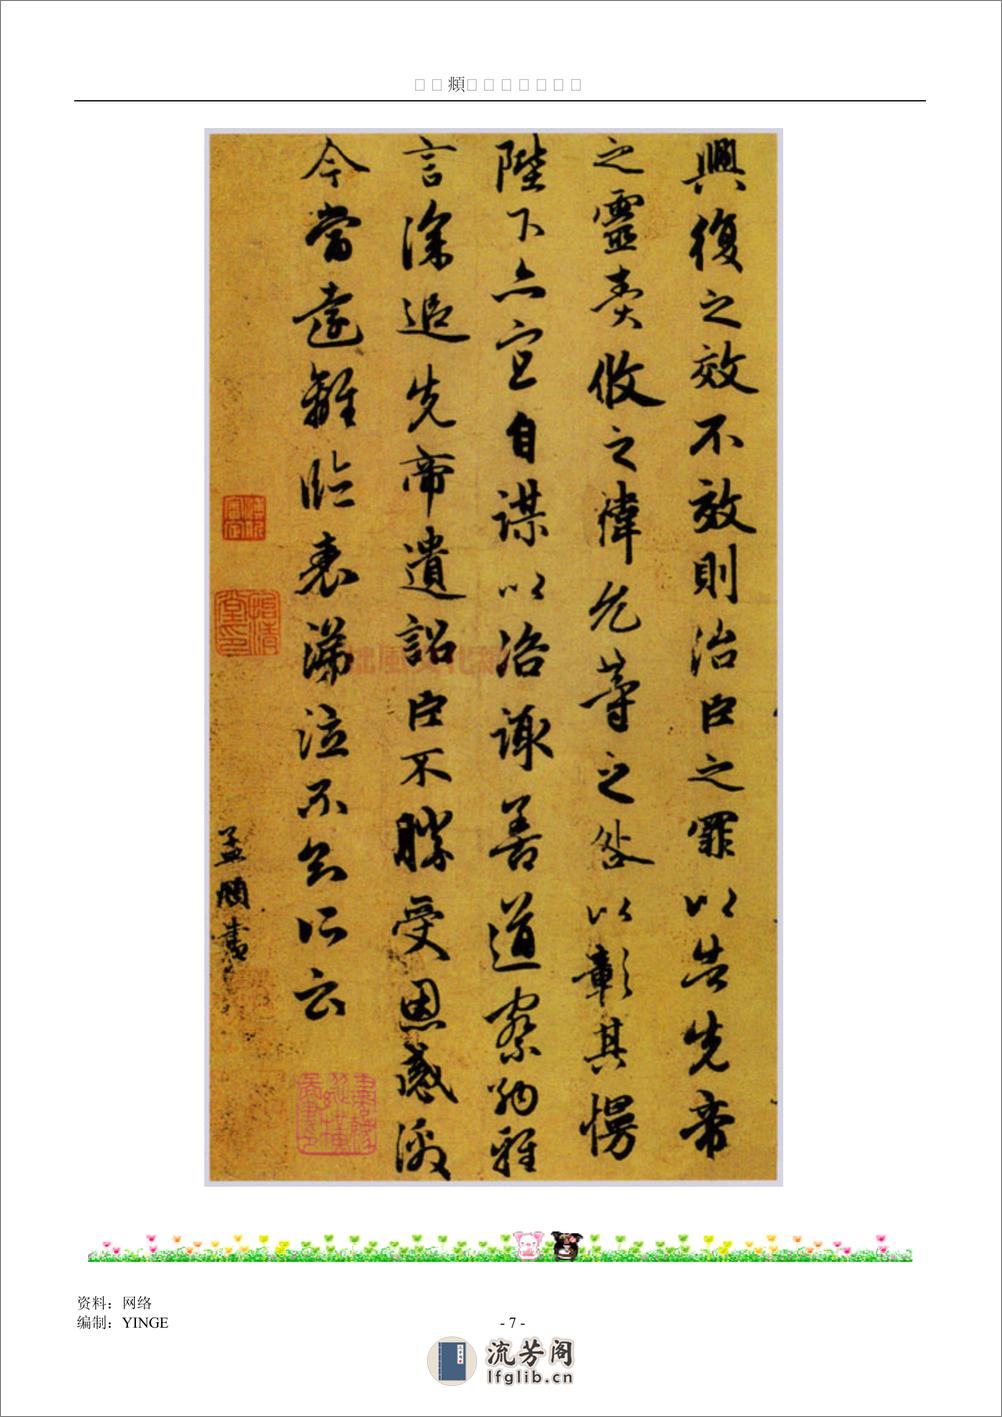 □□頫□□□□□□□
興復之效不效則治臣之罪以告先帝
之靈責攸之禕允等之咎以彰其慢
陛下亦宜自謀以咨諏善道察納雅
言深追先帝遺詔臣不勝受恩感激
今當遠離臨表涕泣不知所云
孟頫書
资料：网络
编制：YINGE
- 7 -
流芳阁
lfglib.cn